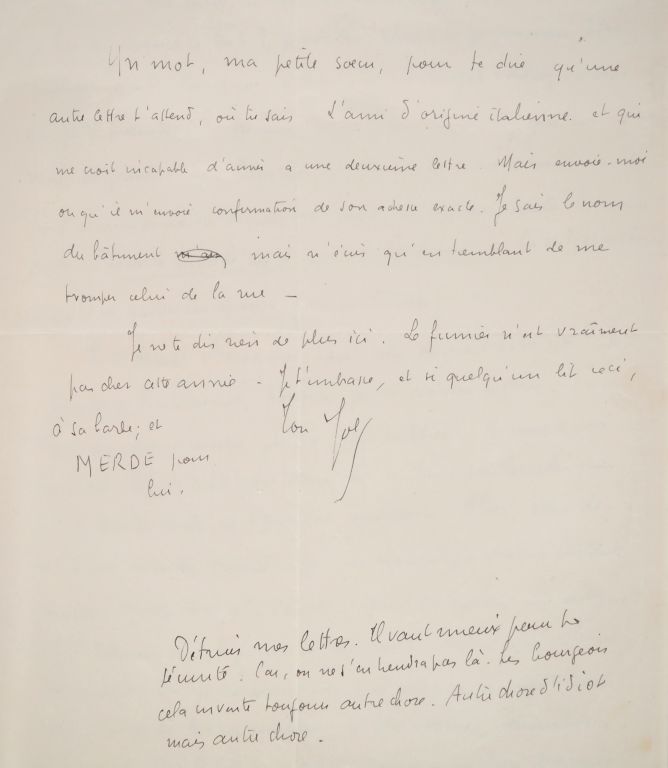 Un mot, ma petite soeur, pour te dire qu'une
autre lettre t'attend, où tu sais L'ami d'origine italienne. et qui
me croit incapable d'amener a une deuxième lettre. Mais envoie-moi
ou qu'il m'envoie confirmation de son adresse exacte. Je sais le nom
du bâtiment mais n'écris qu'en tremblant de me
tromper celui de la rue —
Je ne te dis rien de plus ici. Le fumier n'est vraiment
pas cher cette année - Je t'embrasse, et si quelqu'un lit ceci,
à sa barbe; et Ton
MERDE pour
lui.
Détruis mes lettres. Il vaut mieux pour ta
sécurité. Car, on ne s'en tiendra pas là. Les bourgeois
cela invente toujours autre chose. Autre chose d'idiot
mais autre chose.